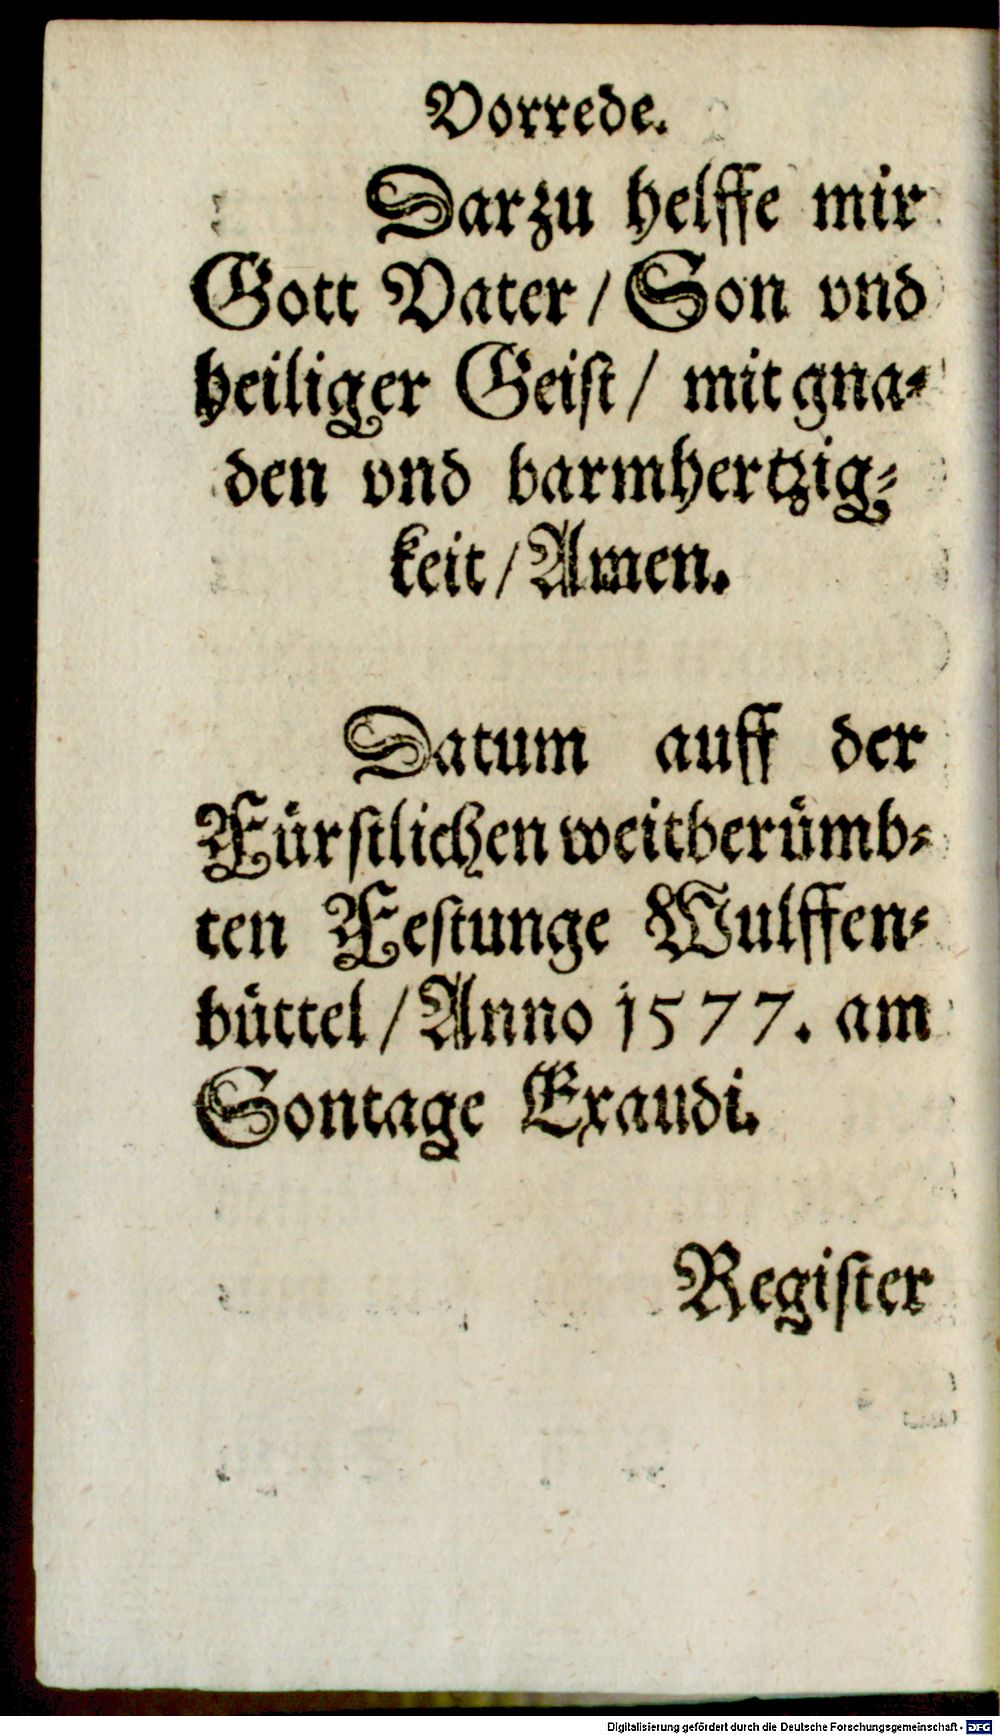 Vorrede.
Darzu helffe mir
Gott Vater / Son vnd
heiliger Geiſt / mit gna⸗
den vnd barmhertzig⸗
keit / Amen.
Datum auff der
Fürſtlichen weitberümb⸗
ten Feſtunge Wulffen⸗
büttel / Anno 1577. am
Sontage Exaudi.
Regiſter
Digitalisierung gefördert durch die Deutsche Forschungsgemeinschaft - DFG